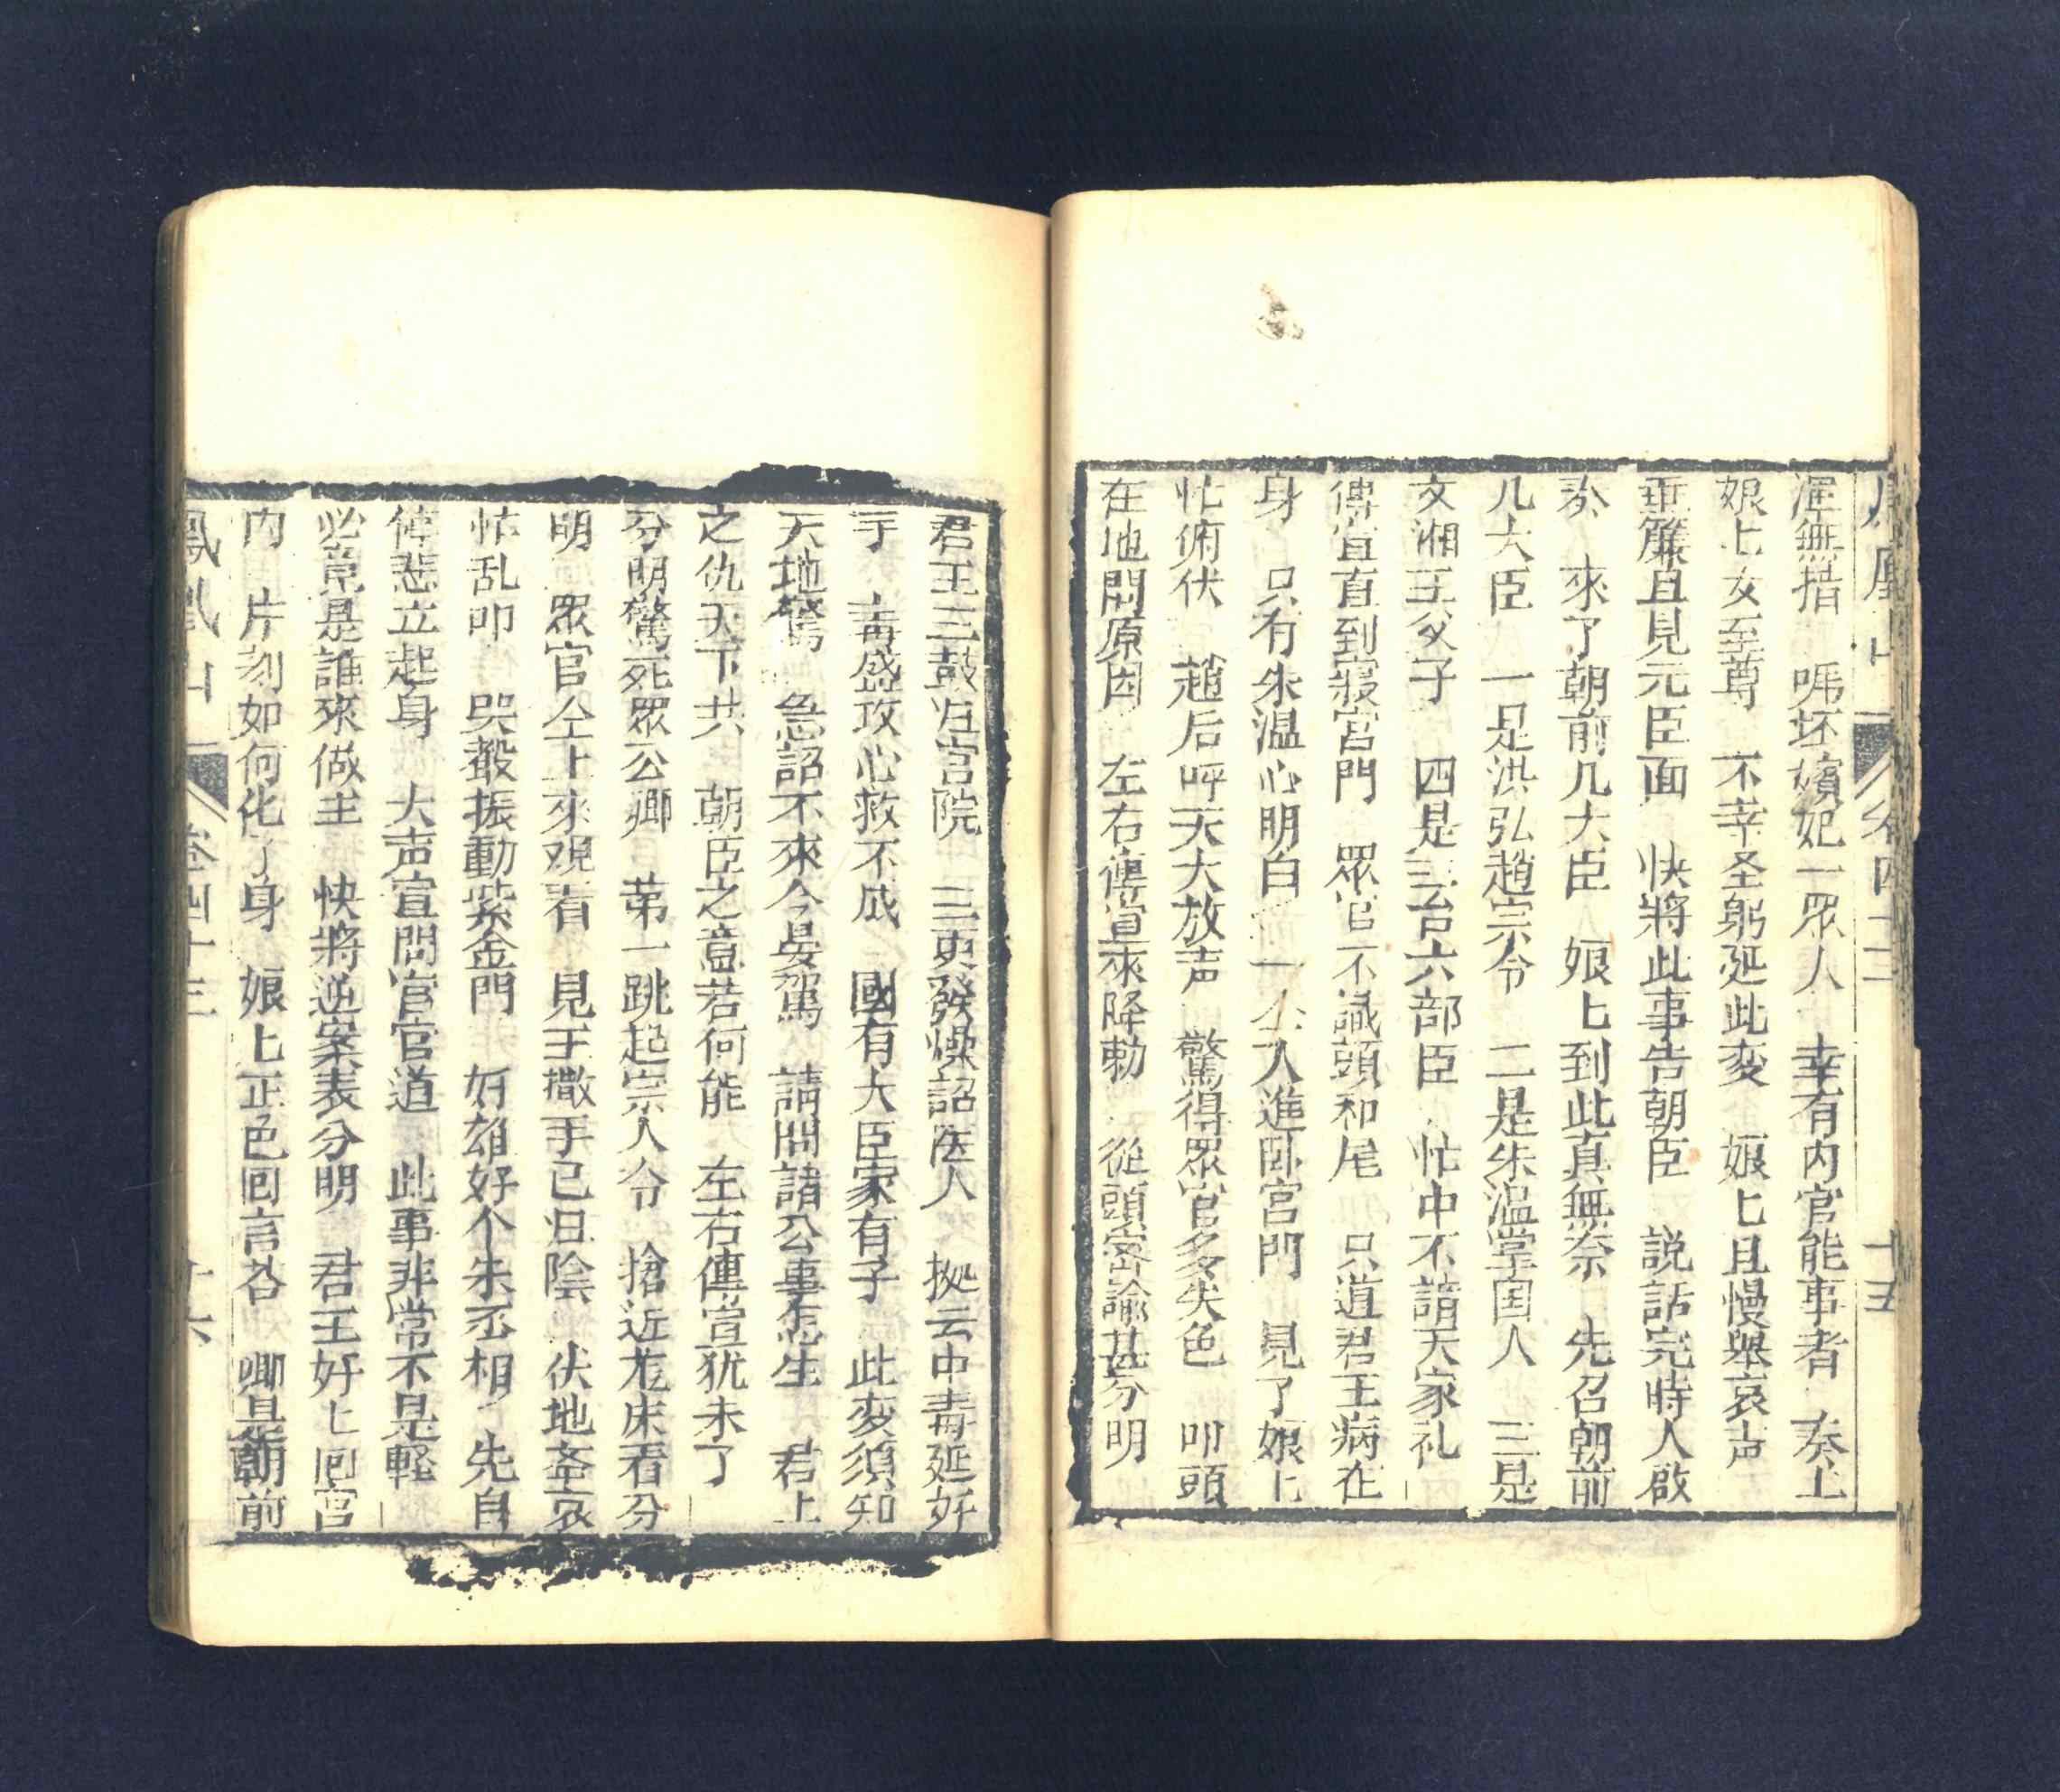 渾無措 唬坏嬪妃一眾人 幸有内官能事者 奏上
娘上女至尊 不幸圣躬延此変 娘匕且慢舉哀声
垂簾且見元臣面 快將此事告朝臣 説話完時人啟
奏 來了朝前几大臣 娘匕到此真無奈 先召朝前
几大臣 一是洪弘趙宗令 二是朱溫掌国人 三是
文湘王父子 四是三台六部臣 忙中不請天家礼
傳宣直到寢宮門 眾官不識頭和尾 只道君王病在
身 只有朱温心明白 一仝人進卧宮門 見了娘上
忙俯伏 趙后呼天大放声 驚得眾官多失色 叩頭
在地問原因 左右傳道來降勅 從頭密諭甚分明
鳳凰山 卷四十三 十五
君王三鼓归宮院 三更發燥詔医人 拠云中毒延奸
手 毒盛攻心救不成 國有大臣家有子 此変須知
天地驚 急詔不來今晏駕 請問諸公事怎生 君上
之仇天下共 朝臣之意若何能 左右傳宣犹未了
分明驚死眾公卿 苐一跳起宗人令 搶近龙床看分
明 眾官仝上來观看 見王撒手已归陰 伏地斉哀
忙乱叩 哭声振動紫金門 奸雄好个朱丞相 先自
停悲立起身 大声宣問官官道 此事非常不是輕
必竟是誰來做主 快將逆案表分明 君王好匕囘宮
内 片刻如何化了身 娘上正色回言答 卿是朝前
鳳凰山 卷四十三 十六